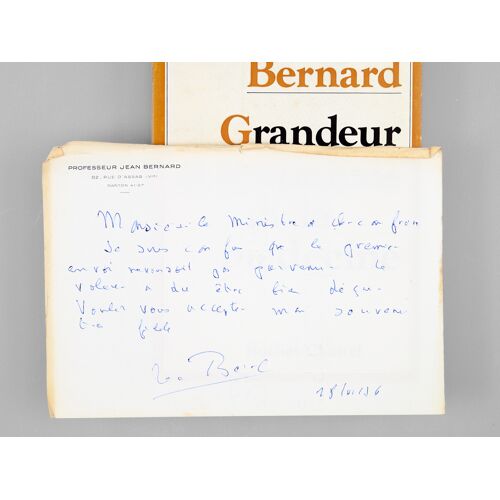 Bernard
Grandeur
PROFESSEUR JEAN BERNARD
82, RUE D'ASSAS (VIe)
DANTON 41-27
Monsieur le Ministre et cher confrère
Je suis confus que le premier
envoi ne vous soit pas parvenu. Le
voleur a dû être bien déçu.
Veuillez vous accepter mon souvenir
très fidèle
Jean Bernard